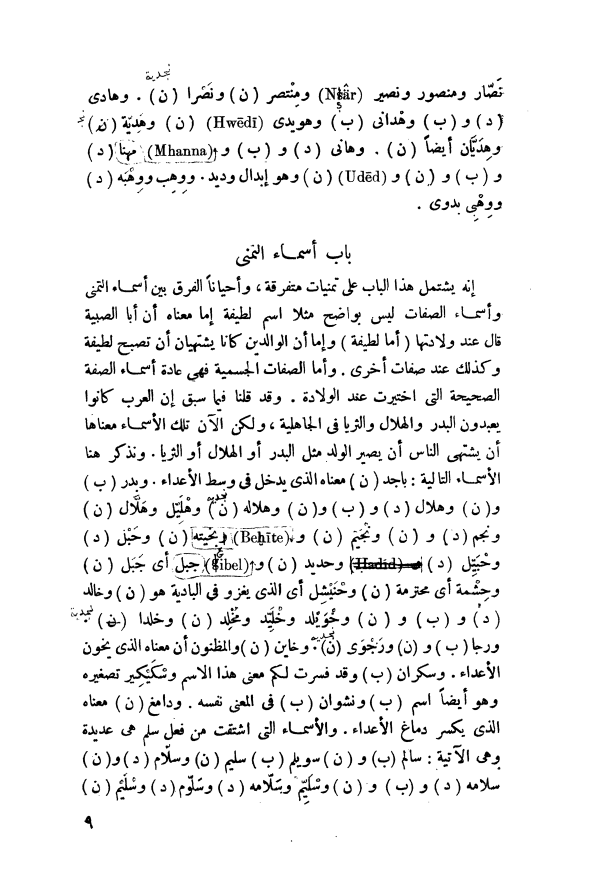 نجدية
نَصّار ومنصور ونصير (Nṣâr) ومِنْتصر (ن) ونَصْرا (ن) . وهادى
(د) و (ب) وهْدانى (ب) وهويدى (Hwēdī) (ن) وهَدِيّة (ن)
وهِدَيّان أيضاً (ن) . وهانى (د) و (ب) و (Mhanna) مهنا (د)
و (ب) و (ن) و (Udēd) (ن) وهو إبدال وديد . ووهب ووهْبَه (د)
ووهْبِي بدوى .
باب أسماء التمنى
إنه يشتمل هذا الباب على تمنيات متفرقة ، وأحياناً الفرق بين أسماء التمنى
وأسماء الصفات ليس بواضح مثلا اسم لطيفة إما معناه أن أبا الصبية
قال عند ولادتها (أما لطيفة) وإما أن الوالدين كانا يشتهيان أن تصبح لطيفة
وكذلك عند صفات أخرى . وأما الصفات الجسمية فهى عادة أسماء الصفة
الصحيحة التى اختيرت عند الولادة . وقد قلنا فيما سبق إن العرب كانوا
يعبدون البدر والهلال والثريا فى الجاهلية ، ولكن الآن تلك الأسماء معناها
أن يشتهى الناس أن يصير الولد مثل البدر أو الهلال أو الثريا . ونذكر هنا
الأسماء التالية : باجد (ن) معناه الذى يدخل فى وسط الأعداء . وبدر (ب)
و (ن) وهلال (د) و (ب) و (ن) وهلاله (ن) نجدية وهْلَيّل وهَلَّال (ن)
ونجم (د) و (ن) ونْجَيّم (ن) و (Beḫīte) بخيته (ن) وحَبْل (د)
وحْبَيّل (د) (Hadīd) وحديد (ن) و (Ǧibel) جبل أى جَبَل (ن)
وحِشْمة أى محترمة (ن) وحْنَيْشِل أى الذى يغزو فى البادية هو (ن) وخالد
(د) و (ب) و (ن) وخْوَيْلد وخْلَيّد ومْخْلِد (ن) وخلدا (ن) نجدية
ورجا (ب) و (ن) ورَجْوَى (ن) نجدية . وخاين (ن) والمظنون أن معناه الذى يخون
الأعداء . وسكران (ب) وقد فسرت لكم معنى هذا الاسم وسْكَيْكِير تصغيره
وهو أيضاً اسم (ب) ونشوان (ب) فى المعنى نفسه . ودامغ (ن) معناه
الذى يكسر دماغ الأعداء . والأسماء التى اشتقت من فعل سلم هى عديدة
وهى الآتية : سالم (ب) و (ن) سويلم (ب) سليم (ن) وسلّام (د) و (ن)
سلامه (د) و (ب) و (ن) وسْلَيِّم وسَلّامه (د) وسَلّوم (د) وسْلَيْم (ن)
٩